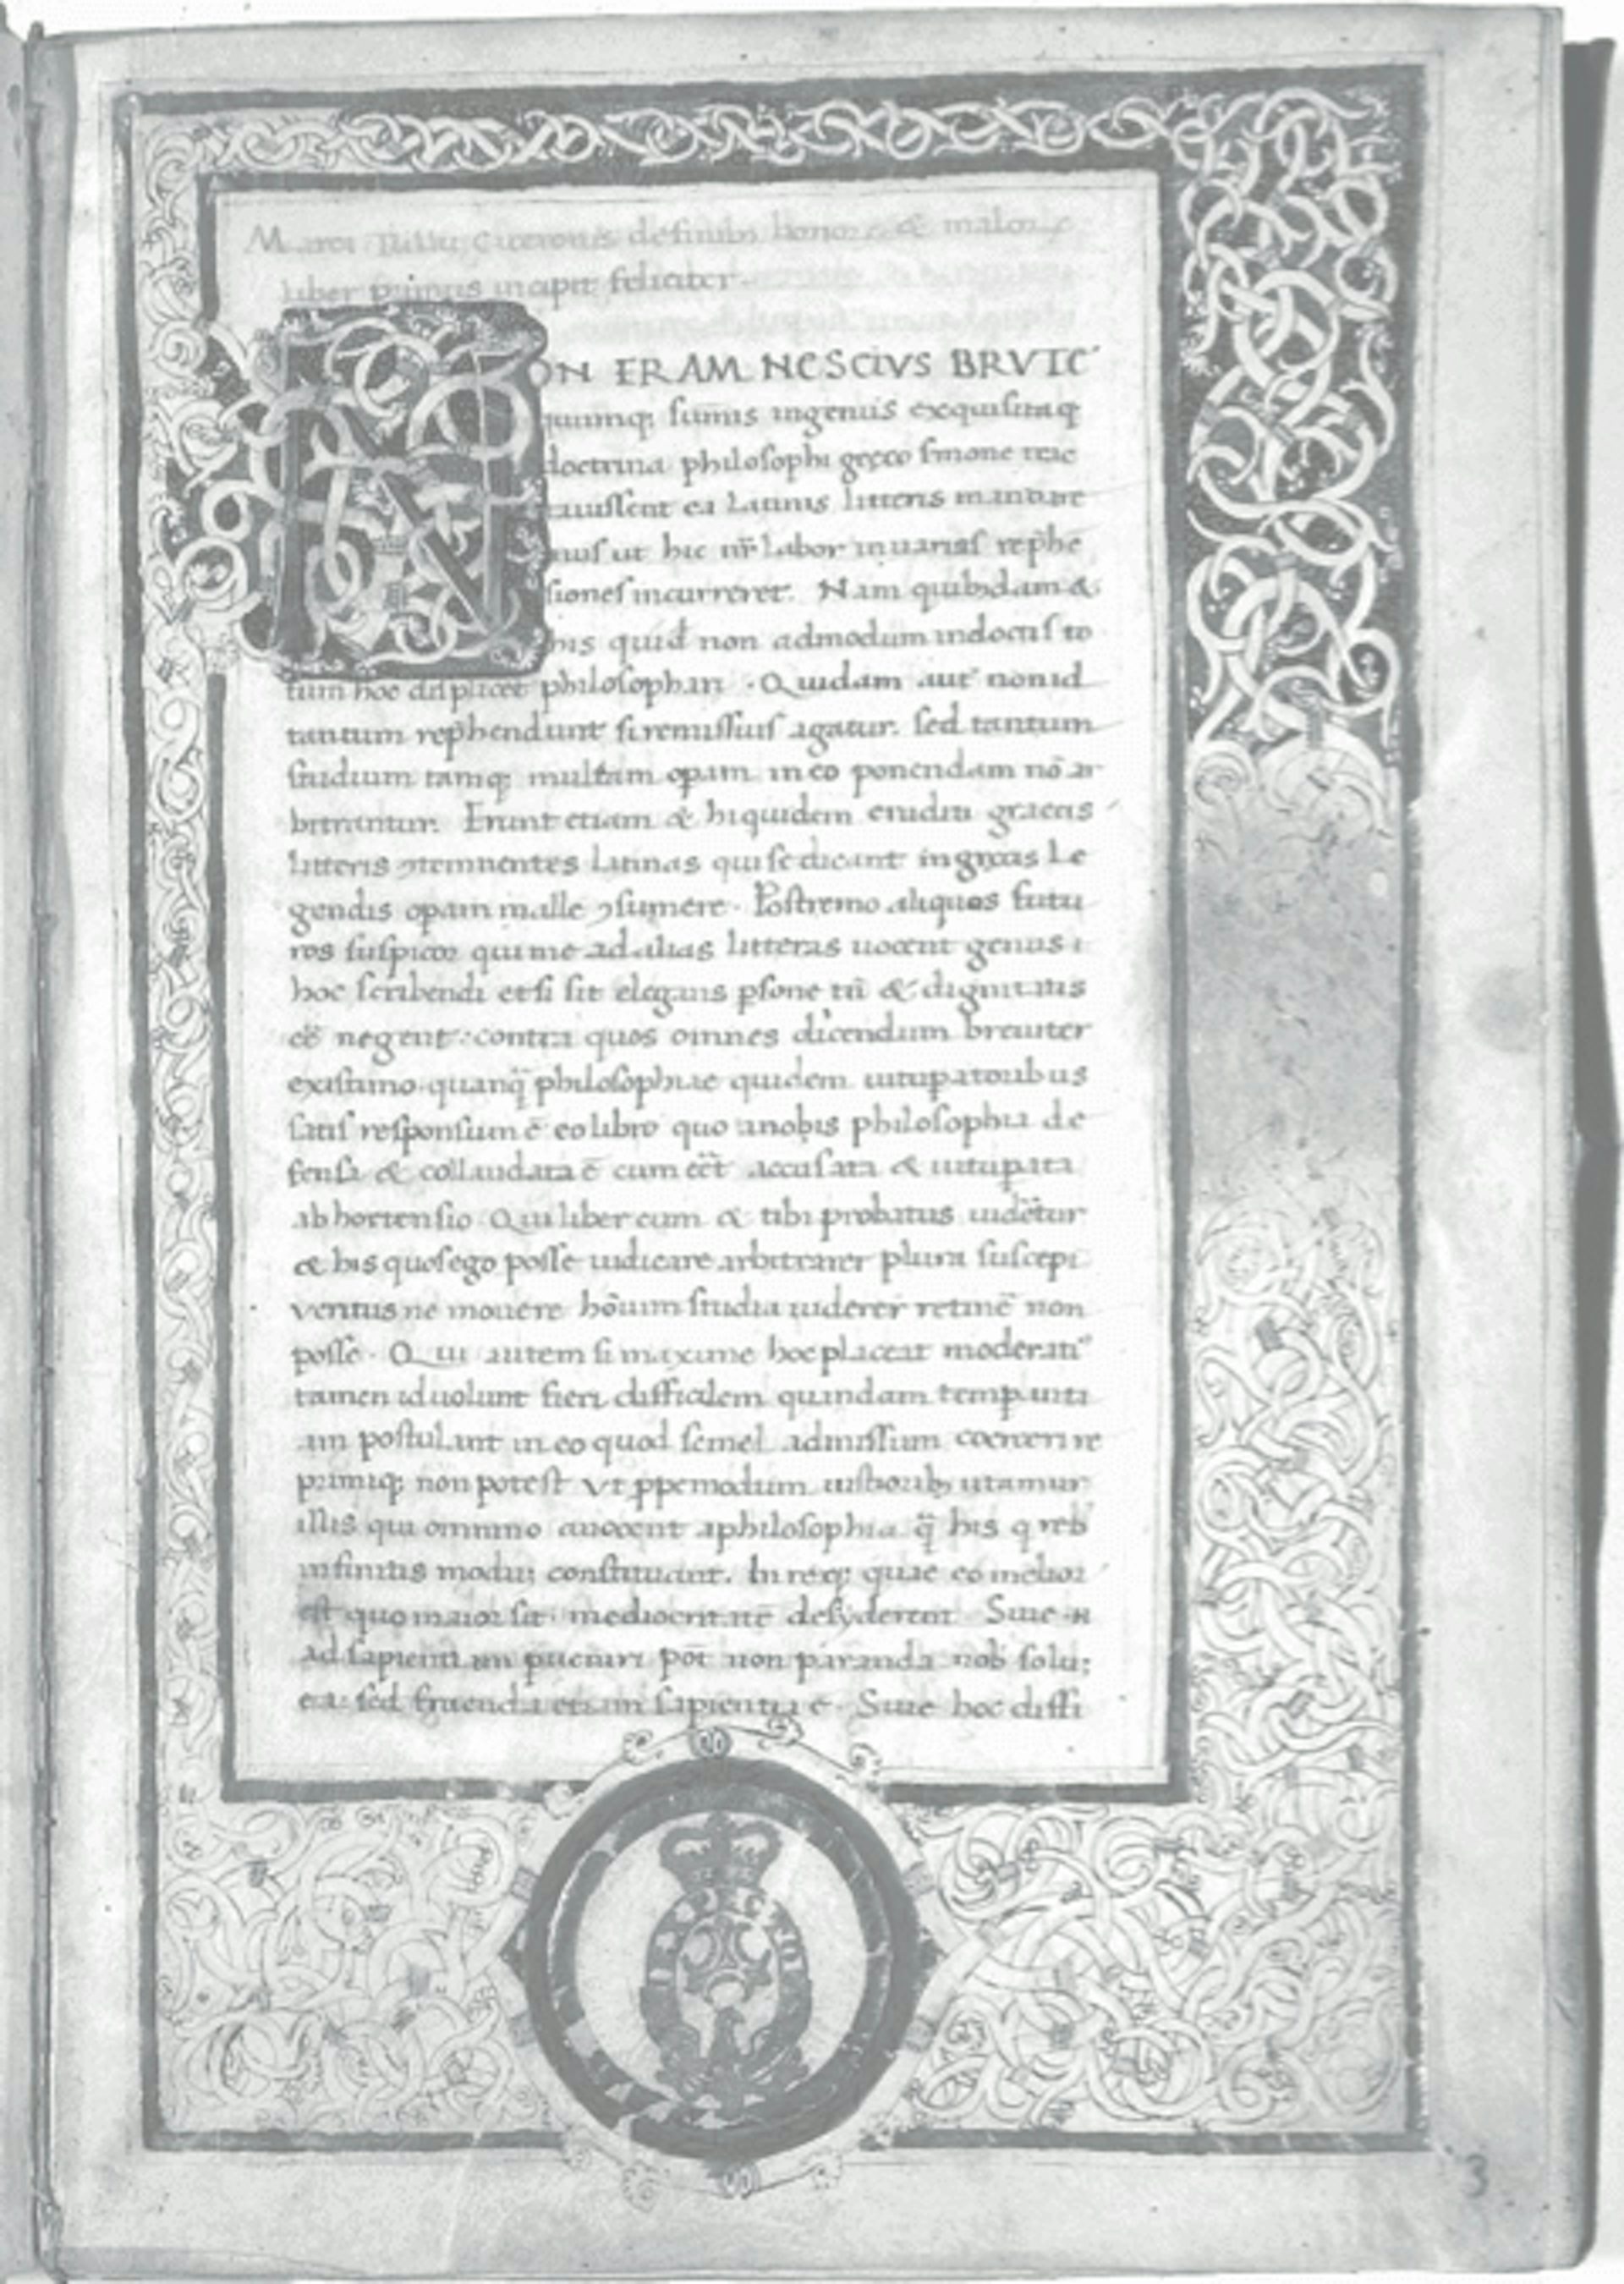 Marci Tullii Ciceronis de finibꝫ bonoꝝ & maloꝝ
liber primus incipit feliciter.
NON ERAM NESCIVS BRVTE
quumqꝫ sūmis ingeniis exquisitaqꝫ
doctrina philosophi greco sermone trac
tauissent ea Latinis litteris mandare
mus ut hic nr̄ labor in uarias rep̄he
siones incurreret. Nam quibusdam &
his quid̄ non admodum indoctis to
tum hoc displicet philosophari. Quidam aut̄ non id
tantum rep̄hendunt si remissius agatur. sed tantum
studium tamqꝫ multam oꝑam in eo ponendam nō ar
bitrantur. Erunt etiam & hi quidem eruditi graecis
litteris ꝯtemnentes latinas qui se dicant in grecis Le
gendis oꝑam malle ꝯsumere. Postremo aliquos futu
ros suspicor qui me ad alias litteras uocent genus i
hoc scribendi et si sit elegans ꝑsone tn̄ & dignitatis
eē negent. contra quos omnes dicendum breuiter
existimo. quanq̄ philosophiae quidem uituꝑatoribus
satis responsum ē eo libro quo a nobis philosophia de
fensa & collaudata ē cum eēt accusata & uituꝑata
ab hortensio. Qui liber cum & tibi probatus uidētur
& his quos ego posse iudicare arbitrarer plura suscepi
veritus ne mouere hōium studia uiderer retinē non
posse. Qui autem si maxime hoc placeat moderati⁹
tamen id uolunt fieri difficilem quandam temꝑanti
am postulant in eo quod semel admissum coerceri re
primiqꝫ non potest vt ꝓpemodum iustioribꝫ utamur
illis qui omnino auocent a philosophia q̄ his q reb̄
infinitis modum constituant. In reqꝫ quae eo melior
est quo maior sit. mediocritatē desyderent. Siue .n.
ad sapientiam pueniri pōt non paranda nob̄ soluꝫ
ea: sed fruenda etiam sapientia ē. Siue hoc diffi
3